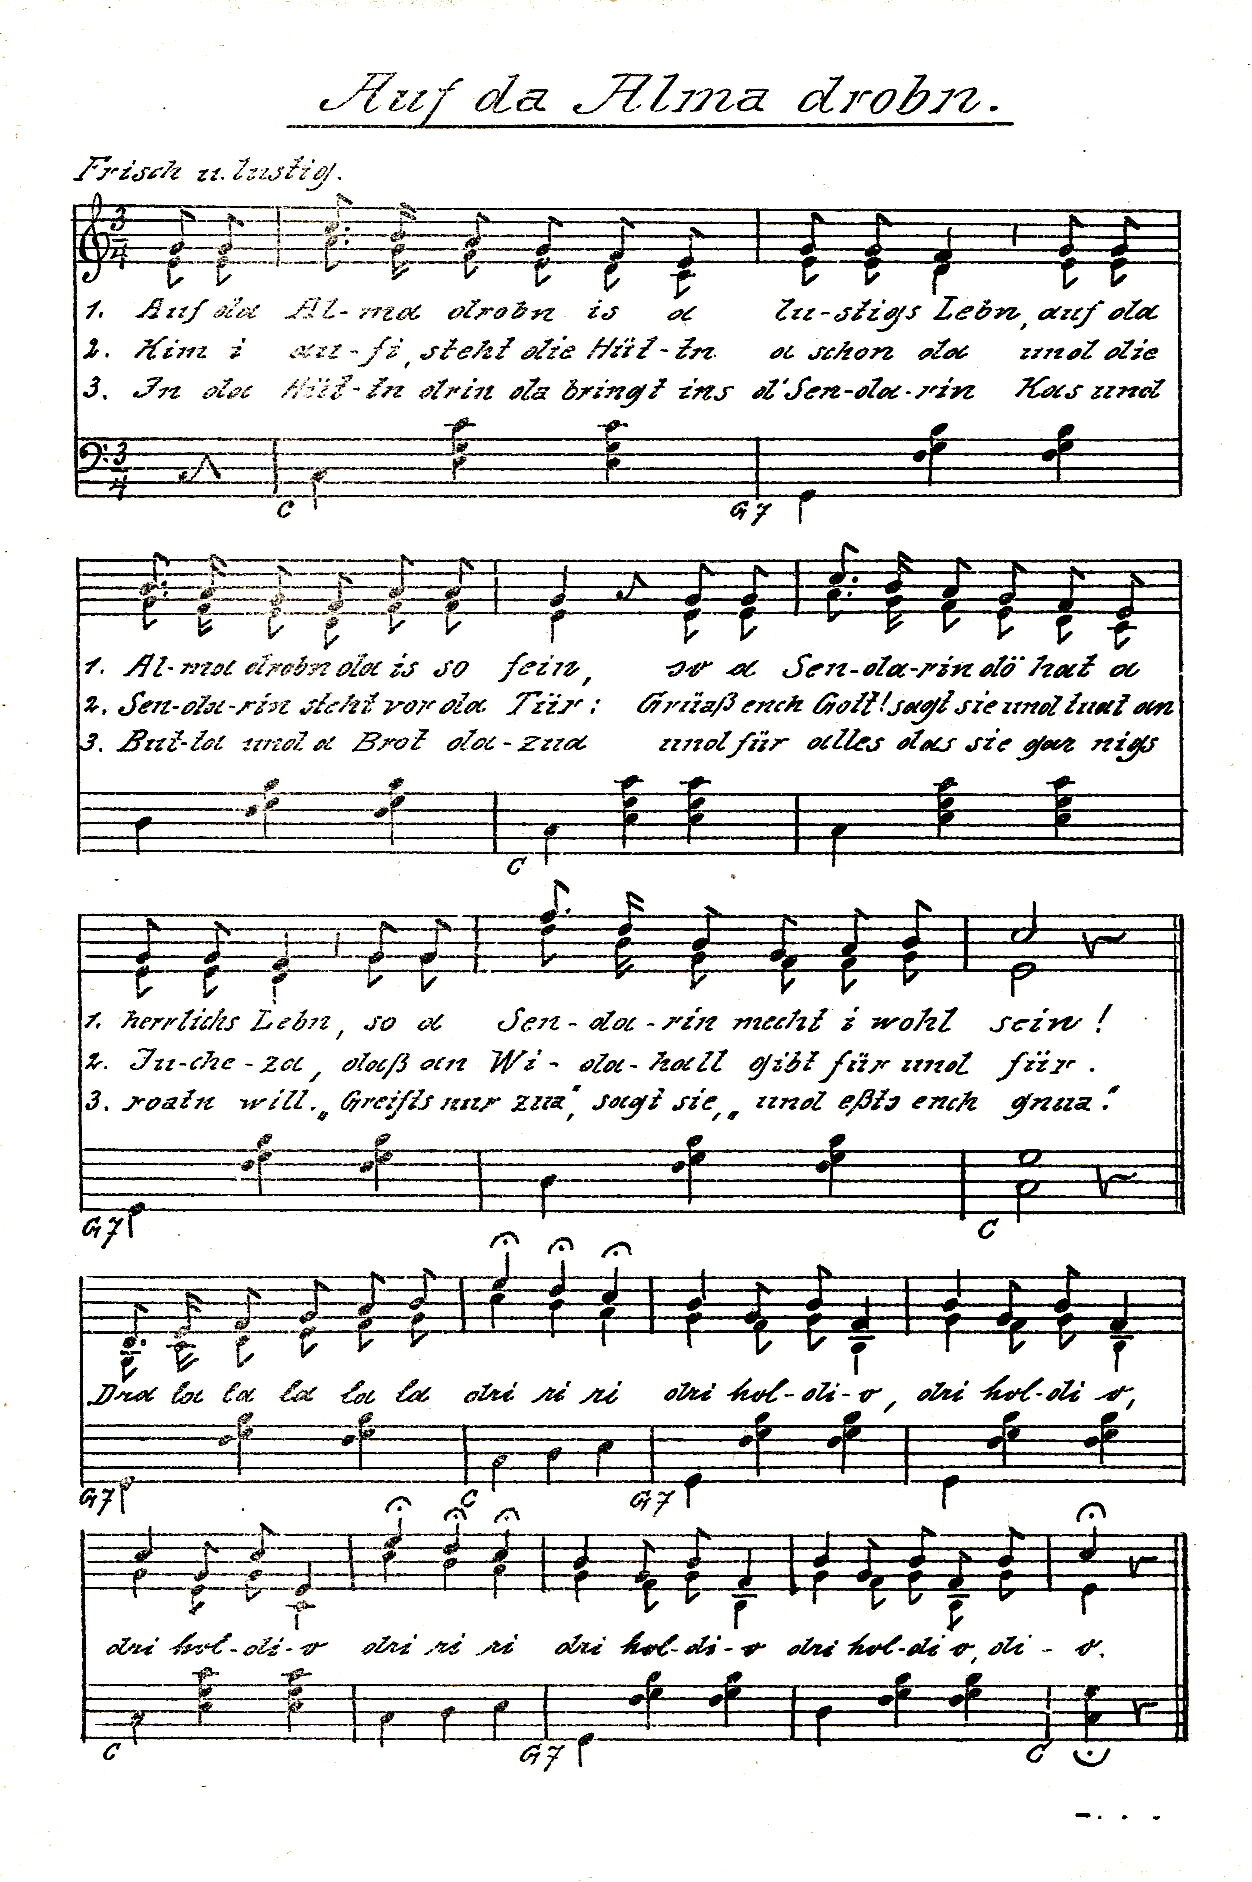 Auf da Alma drobn.
Frisch u. lustig.
3/4
1. Auf da Al-ma drobn is a lu-stigs Lebn, auf da
2. Kim i au-fi, steht die Hüt-tn a schon da und die
3. In da Hüt-tn drin da bringt ins d' Sen-da-rin Kas und
3/4
C G7
1. Al-ma drobn da is so fein, so a Sen-da-rin dö hat a
2. Sen-da-rin steht vor da Tür: Grüaß ench Gott! sagt sie und tuat an
3. But-ta und a Brot da-zua und für alles das sie gar nigs
C
1. herrlichs Lebn, so a Sen-da-rin mecht i wohl sein!
2. Ju-che-za, daß an Wi-da-hall gibt für und für.
3. roatn will. „Greifts nur zua", sagt sie, „und eßts ench gnua."
G7 C
Dra la la la la la dri ri ri dri hol-di-o, dri hol-di o,
G7 C G7
dri hol-di-o dri ri ri dri hol-di-o dri hol-di o, di-o.
C G7 C